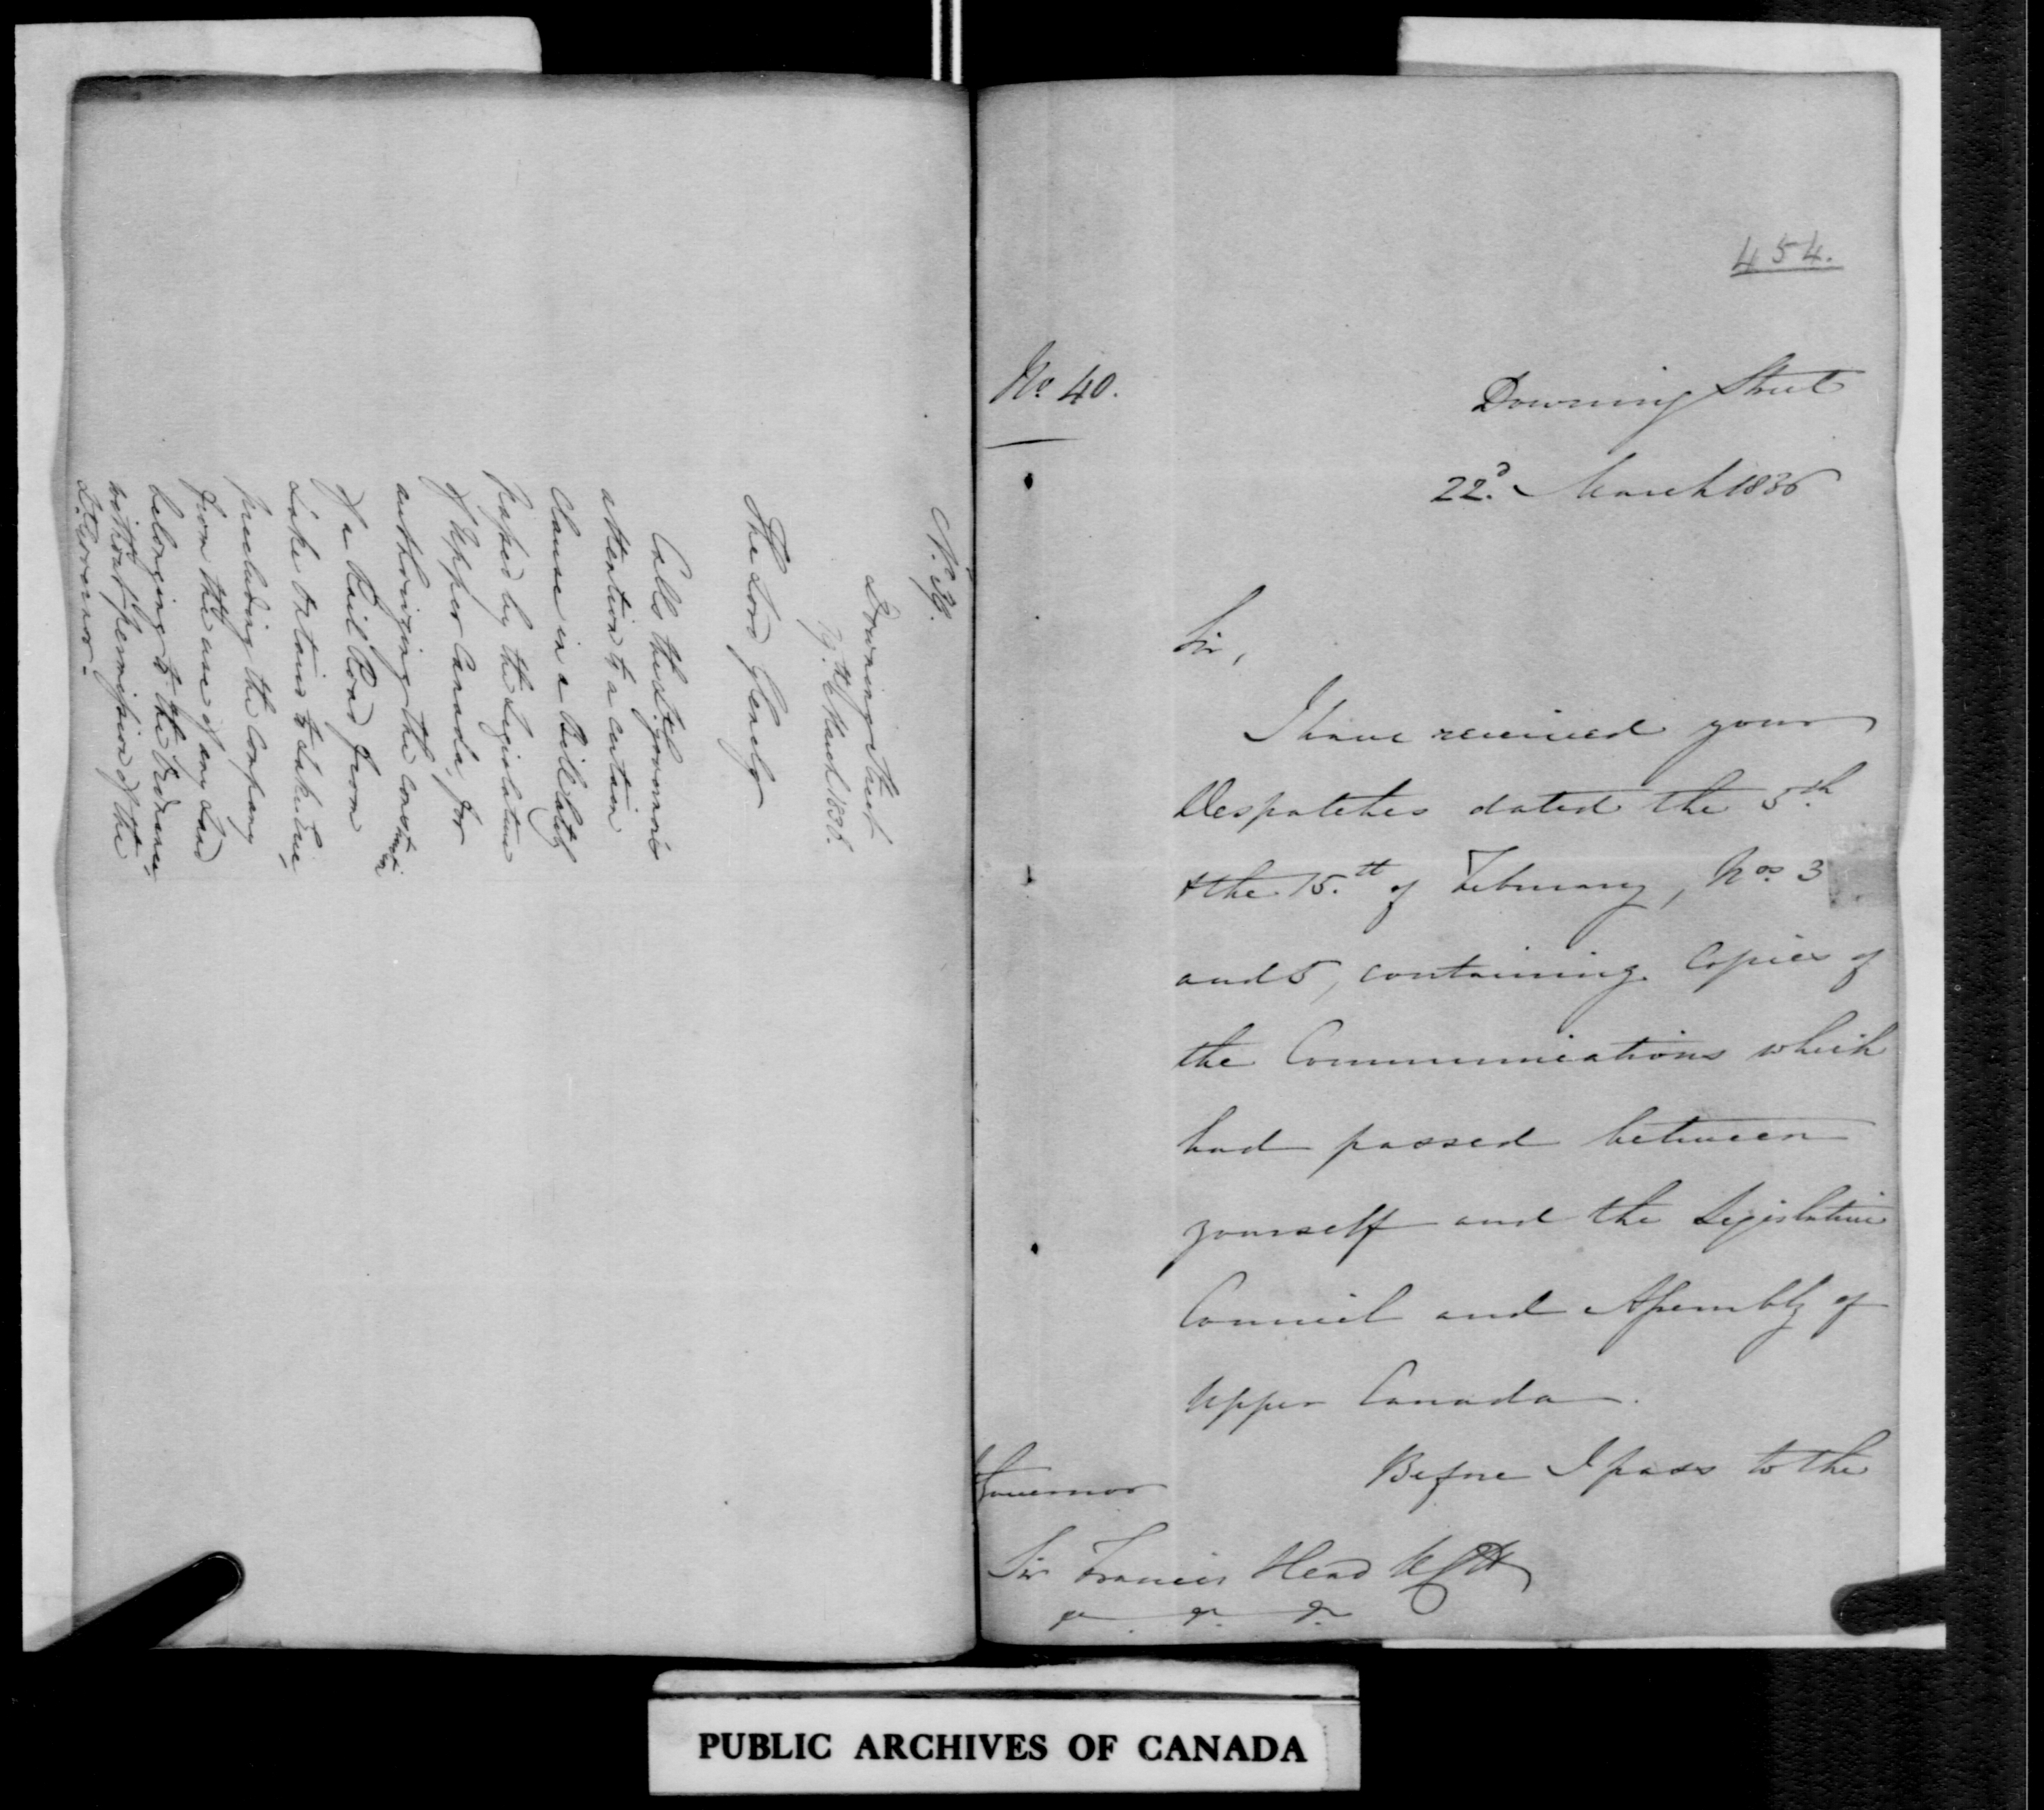 Downing Street
March 1836.
The Lord Glenelg
Calls the Lt. Governor's
attention to a certain
Clause in a Bill lately
passed by the Legislature
of Upper Canada, for
authorizing the construction
of a Rail Road from
Lake Ontario to Lake
precluding the Company
from the use of any Land
belonging to the Ordnance,
without permission of the
Lt. Governor.
454.
No. 40.
Downing Street
22d. March 1836
Sir,
I have received your
Despatches dated the 5th.
& the 15.th of February, Nos. 3
and 5, containing Copies of
the Communications which
had passed between
yourself and the Legislative
Council and Assembly of
Upper Canada.
Before I pass to the
Governor
Sir Francis Head KCH
&c. &c. &c.
PUBLIC ARCHIVES OF CANADA